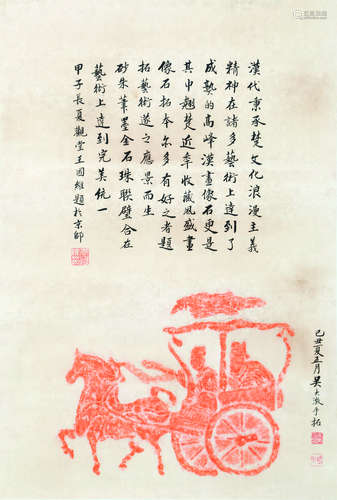 漢代秉承楚文化浪漫主義
精神在諸多藝術上達到了
成熟的高峰漢畫像石更是
其中翹楚近年收藏風盛畫
像石拓本尔多有好之者題
拓藝術遂之應景而生
砂朱筆墨金石珠聯璧合在
藝術上達到完美統一
甲子長夏觀堂王國維題於京師
己丑夏五月吴大澂手拓